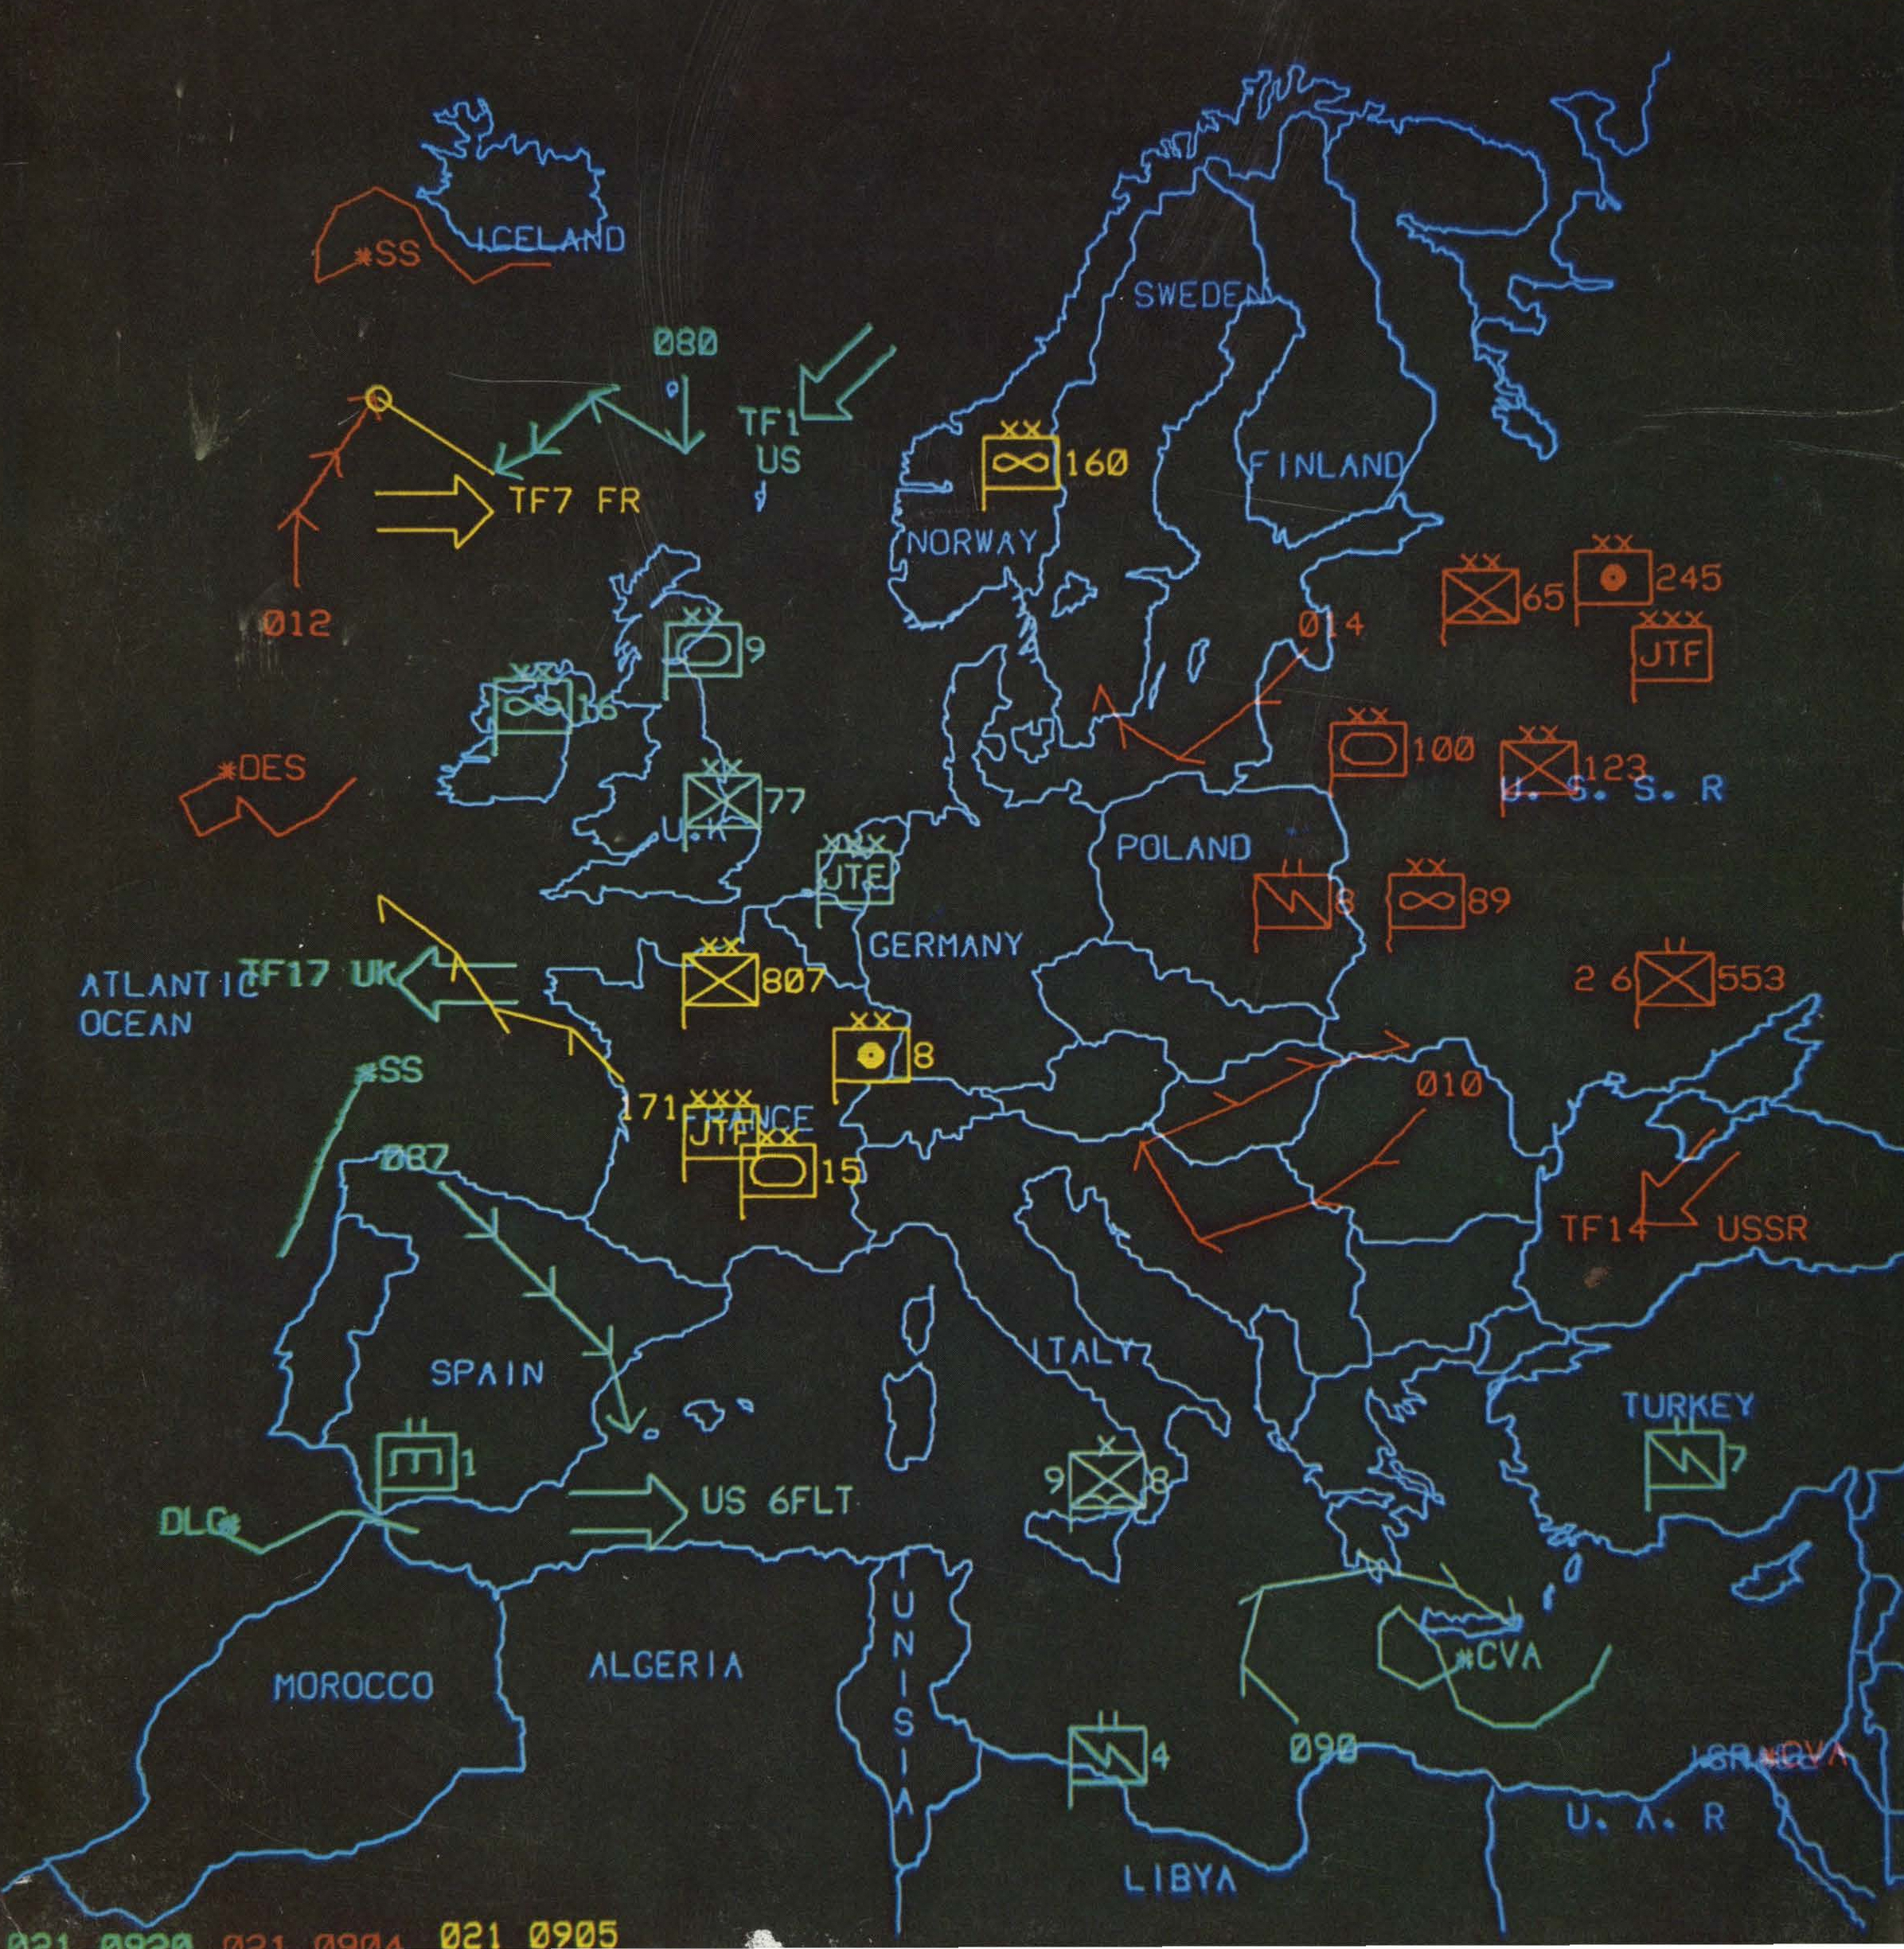 ICELAND
*SS
SWEDEN
080
TF1
US
XX
160
FINLAND
TF7 FR
NORWAY
XX
245
XX
65
012
XXX
JTF
014
XX
9
XX
16
XX
100
XX
123
U. S. S. R
*DES
XX
77
U.K
POLAND
XXX
JTF
8
XX
89
GERMANY
ATLANTIC
OCEAN
TF17 UK
XX
807
2 6
553
XX
8
*SS
010
171
XXX
JTF
FRANCE
XX
15
087
TF14
USSR
ITALY
SPAIN
TURKEY
1
X
9
8
7
DLG*
US 6FLT
TUNISIA
*CVA
ALGERIA
MOROCCO
4
090
*CVA
U. A. R
LIBYA
021 0920 021 0904 021 0905